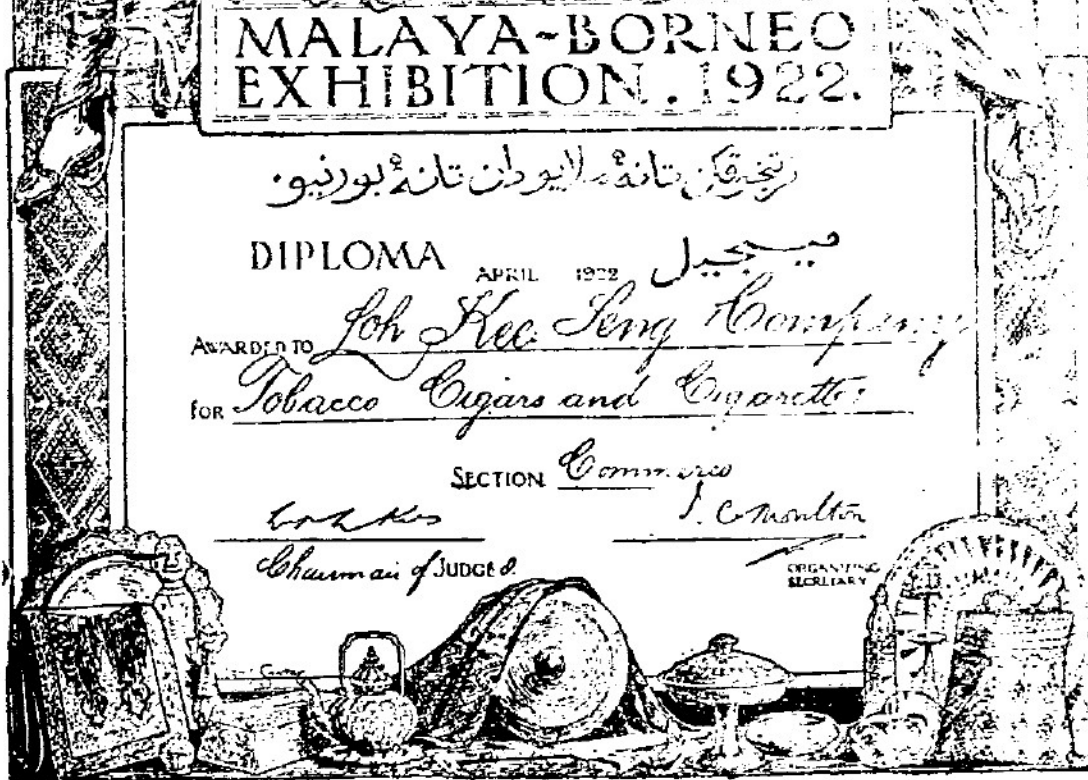 MALAYA-BORNEO
EXHIBITION. 1922.
تانه ملايو دان تانه بورنيو.
DIPLOMA APRIL 1922
AWARDED TO Loh Kee Seng Company
FOR Tobacco Cigars and Cigarettes
SECTION Commerce
J. C. Moulton
Chairman of JUDGES.
ORGANISING
SECRETARY